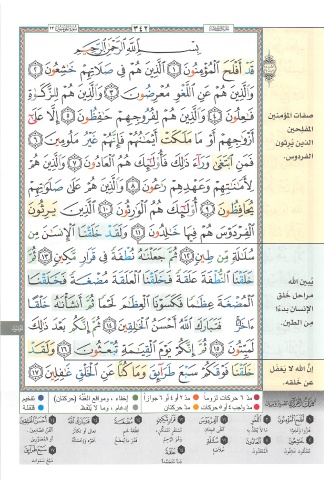 ٣٤٢
بِسْمِ اللَّهِ الرَّحْمَٰنِ الرَّحِيمِ
قَدْ أَفْلَحَ الْمُؤْمِنُونَ ١ الَّذِينَ هُمْ فِي صَلَاتِهِمْ خَاشِعُونَ ٢
وَالَّذِينَ هُمْ عَنِ اللَّغْوِ مُعْرِضُونَ ٣ وَالَّذِينَ هُمْ لِلزَّكَاةِ
فَاعِلُونَ ٤ وَالَّذِينَ هُمْ لِفُرُوجِهِمْ حَافِظُونَ ٥ إِلَّا عَلَىٰ
أَزْوَاجِهِمْ أَوْ مَا مَلَكَتْ أَيْمَانُهُمْ فَإِنَّهُمْ غَيْرُ مَلُومِينَ ٦
فَمَنِ ابْتَغَىٰ وَرَاءَ ذَٰلِكَ فَأُولَٰئِكَ هُمُ الْعَادُونَ ٧ وَالَّذِينَ هُمْ
لِأَمَانَاتِهِمْ وَعَهْدِهِمْ رَاعُونَ ٨ وَالَّذِينَ هُمْ عَلَىٰ صَلَوَاتِهِمْ
يُحَافِظُونَ ٩ أُولَٰئِكَ هُمُ الْوَارِثُونَ ١٠ الَّذِينَ يَرِثُونَ
الْفِرْدَوْسَ هُمْ فِيهَا خَالِدُونَ ١١ وَلَقَدْ خَلَقْنَا الْإِنسَانَ مِن
سُلَالَةٍ مِّن طِينٍ ١٢ ثُمَّ جَعَلْنَاهُ نُطْفَةً فِي قَرَارٍ مَّكِينٍ ١٣ ثُمَّ
خَلَقْنَا النُّطْفَةَ عَلَقَةً فَخَلَقْنَا الْعَلَقَةَ مُضْغَةً فَخَلَقْنَا
الْمُضْغَةَ عِظَامًا فَكَسَوْنَا الْعِظَامَ لَحْمًا ثُمَّ أَنشَأْنَاهُ خَلْقًا
آخَرَ فَتَبَارَكَ اللَّهُ أَحْسَنُ الْخَالِقِينَ ١٤ ثُمَّ إِنَّكُم بَعْدَ ذَٰلِكَ
لَمَيِّتُونَ ١٥ ثُمَّ إِنَّكُمْ يَوْمَ الْقِيَامَةِ تُبْعَثُونَ ١٦ وَلَقَدْ
خَلَقْنَا فَوْقَكُمْ سَبْعَ طَرَائِقَ وَمَا كُنَّا عَنِ الْخَلْقِ غَافِلِينَ ١٧
صفات المؤمنين
المفلحين
الذين يرثون
الفردوس.
يبين الله
مراحل خلق
الإنسان بدءًا
من الطين.
إن الله لا يغفل
عن خلقه.
مد ٦ حركات لزوماً
مد ٢ أو ٤ أو ٦ جوازاً
إخفاء، ومواقع الغنة (حركتان)
تفخيم
مد واجب ٤ أو ٥ حركات
مد حركتان
إدغام، وما لا يلفظ
قلقلة